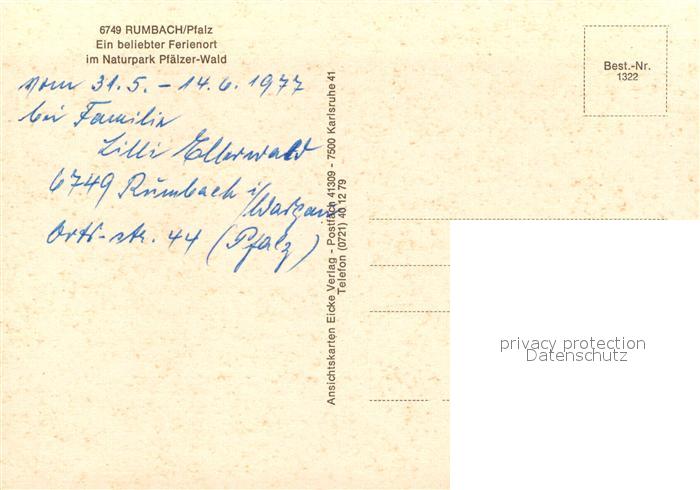 6749 RUMBACH/Pfalz
Ein beliebter Ferienort
im Naturpark Pfälzer-Wald
vom 31.5. – 14.6. 1977
bei Familie
Lilli Ellerwald
6749 Rumbach i/
Orts-str. 44 (Pfalz)
Ansichtskarten Eicke Verlag - Postfach 41309 - 7500 Karlsruhe 41
Telefon (0721) 40 12 79
Best.-Nr.
1322
privacy protection
Datenschutz